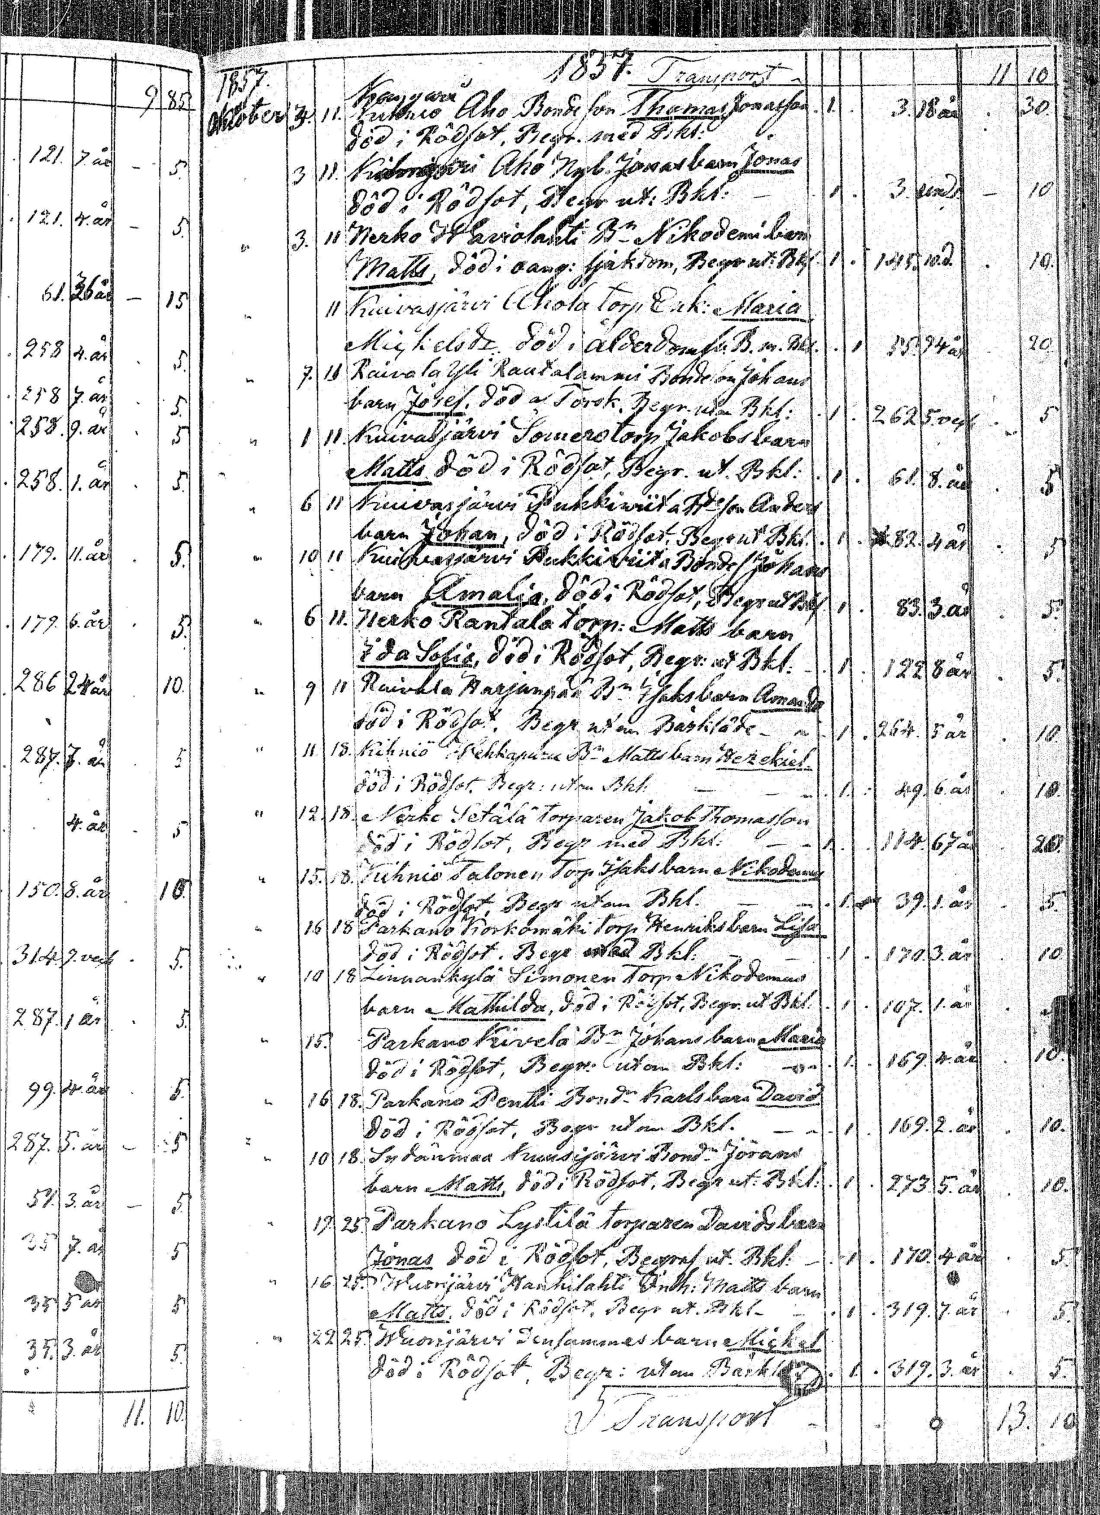 9 85.
121. 7 år - 5.
121. 4. år - 5.
61. 26 år - 15
258 4. år . 5.
258 7. år . 5.
258. 9. år 5
258. 1. år . 5.
179. 11. år . 5.
179. 6. år . 5.
286 24 år . 10.
287. 7. år 5
4. år . 5
150. 8. år . 10.
314 9. vek . 5.
287. 1 år . 5.
99. 4. år . 5.
287. 5. år - 5
51. 3. år - 5
35 7. år 5
35 5 år 5
35. 3. år 5.
11. 10.
1857. 1857. Transport 11 10
Oktober 3. 11. Aho Bondeson Thomas Jonasson 1. 3. 18 år . 30
död i Rödsot, Begr. med Bkl:
3 11. Aho Nyb. Jonas barn Jonas
död i Rödsot, Begr ut: Bkl: 1. 3. - 10
" 3. 11 Nerko Waviolahti Bn Nikodemi barn
Matts, död i oang: sjukdom, Begr ut: Bkl 1. 145. 10 d. . 10.
11 Kuivasjärvi Ahola torp Enk: Maria
Michelsdr. död i ålderdomsv. B. m. Bkl. 1 35. 74 år . 20
" 7. 11 Raivala Yli Rautalammi Bondeson Johans
barn Josef, död a Torsk. Begr. utan Bkl: 1. 262 5. vek 5
" 1 11. Kuivasjärvi Someros torp Jakobs barn
Matts, död i Rödsot, Begr. ut. Bkl: 1. 61. 8. år . 5
" 6 11 Kuivasjärvi Pukkiwiita Bdeson Anders
barn Johan, död i Rödsot. Begr ut Bkl. 1 . 82. 4 år . 5
" 10 11 Kuivasjärvi Pukkiwiita Bondes Johans
barn Amalia, död i Rödsot, Begr ut Bkl 1 . 83. 3. år . 5.
" 6 11. Nerko Rantala torp: Matts barn
Ida Sofia, död i Rödsot, Begr: ut Bkl: 1. 122 8 år . 5.
" 9 11 Raivala Harjunpää Bn Isaks barn Amanda
död i Rödsot, Begr utan Bårkläde 1 . 264. 5 år . 10.
" 11. 18. Kihniö Bn Matts barn Hezekiel
död i Rödsot, Begr: utan Bkl: 1. 49. 6. år . 10.
" 12. 18. Nerko Setälä torparen Jakob Thomasson
död i Rödsot, Begr med Bkl: 1. 114. 67 år . 20.
" 15. 18. Kihniö Talonen Torp Isaks barn Nikodemus
död i Rödsot, Begr utan Bkl. 1. 39. 1. år . 5.
" 16 18 Parkano Korkomäki torp Henriks barn Lisa
död i Rödsot. Begr med Bkl: 1 170. 3. år . 10
" 10 18 Linnankylä Simonen Torp Nikodemus
barn Mathilda, död i Rödsot, Begr. ut Bkl. 1 . 107. 1. år
" 15. Parkano Kivelä Bn Johans barn Maria
död i Rödsot, Begr. utan Bkl: 1. 169. 4 år . 10.
" 16 18. Parkano Pentti Bondn Karls barn David
död i Rödsot, Begr utan Bkl. 1 . 169. 2. år . 10.
" 10 18. Sydänmaa Kuusijärvi Bondn Jörans
barn Matts, död i Rödsot, Begr ut: Bkl: 1 . 273 5. år . 10.
19. 25. Parkano Lystilä torparen Davids barn
Jonas död i Rödsot, Begraf ut. Bkl: 1 . 170. 4 år . 5
" 16 25. Wuorijärvi Hankilahti Enkn: Matts barn
Matts, död i Rödsot, Begr ut. Bkl 1 . 319. 7. år . 5.
" 22 25. Wuorijärvi Densammes barn Michel
död i Rödsot, Begr: utan Bårkl: 1. 319. 3. år . 5.
Transport 13. 10